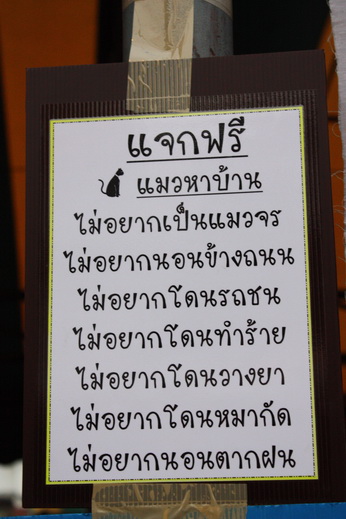 แจกฟรี
แมวหาบ้าน
ไม่อยากเป็นแมวจร
ไม่อยากนอนข้างถนน
ไม่อยากโดนรถชน
ไม่อยากโดนทำร้าย
ไม่อยากโดนวางยา
ไม่อยากโดนหมากัด
ไม่อยากนอนตากฝน